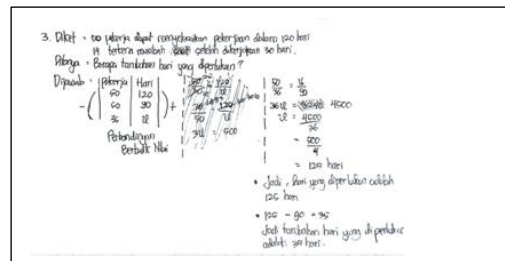 3. Diket : 50 pekerja dapat menyelesaikan pekerjaan dalam 120 hari
14 setelah dikerjakan 30 hari.
Ditanya : Berapa tambahan hari yang diperlukan?
Dijawab :
Pekerja | Hari
50 | 120
50 | 90
36 | x
Perbandingan
Berbalik Nilai
50/36 = x/90
36x = 4500
x = 4500/36
= 500/4
= 125 hari
• Jadi, hari yang diperlukan adalah
125 hari
• 125 - 90 = 35
Jadi tambahan hari yang diperlukan
adalah hari.